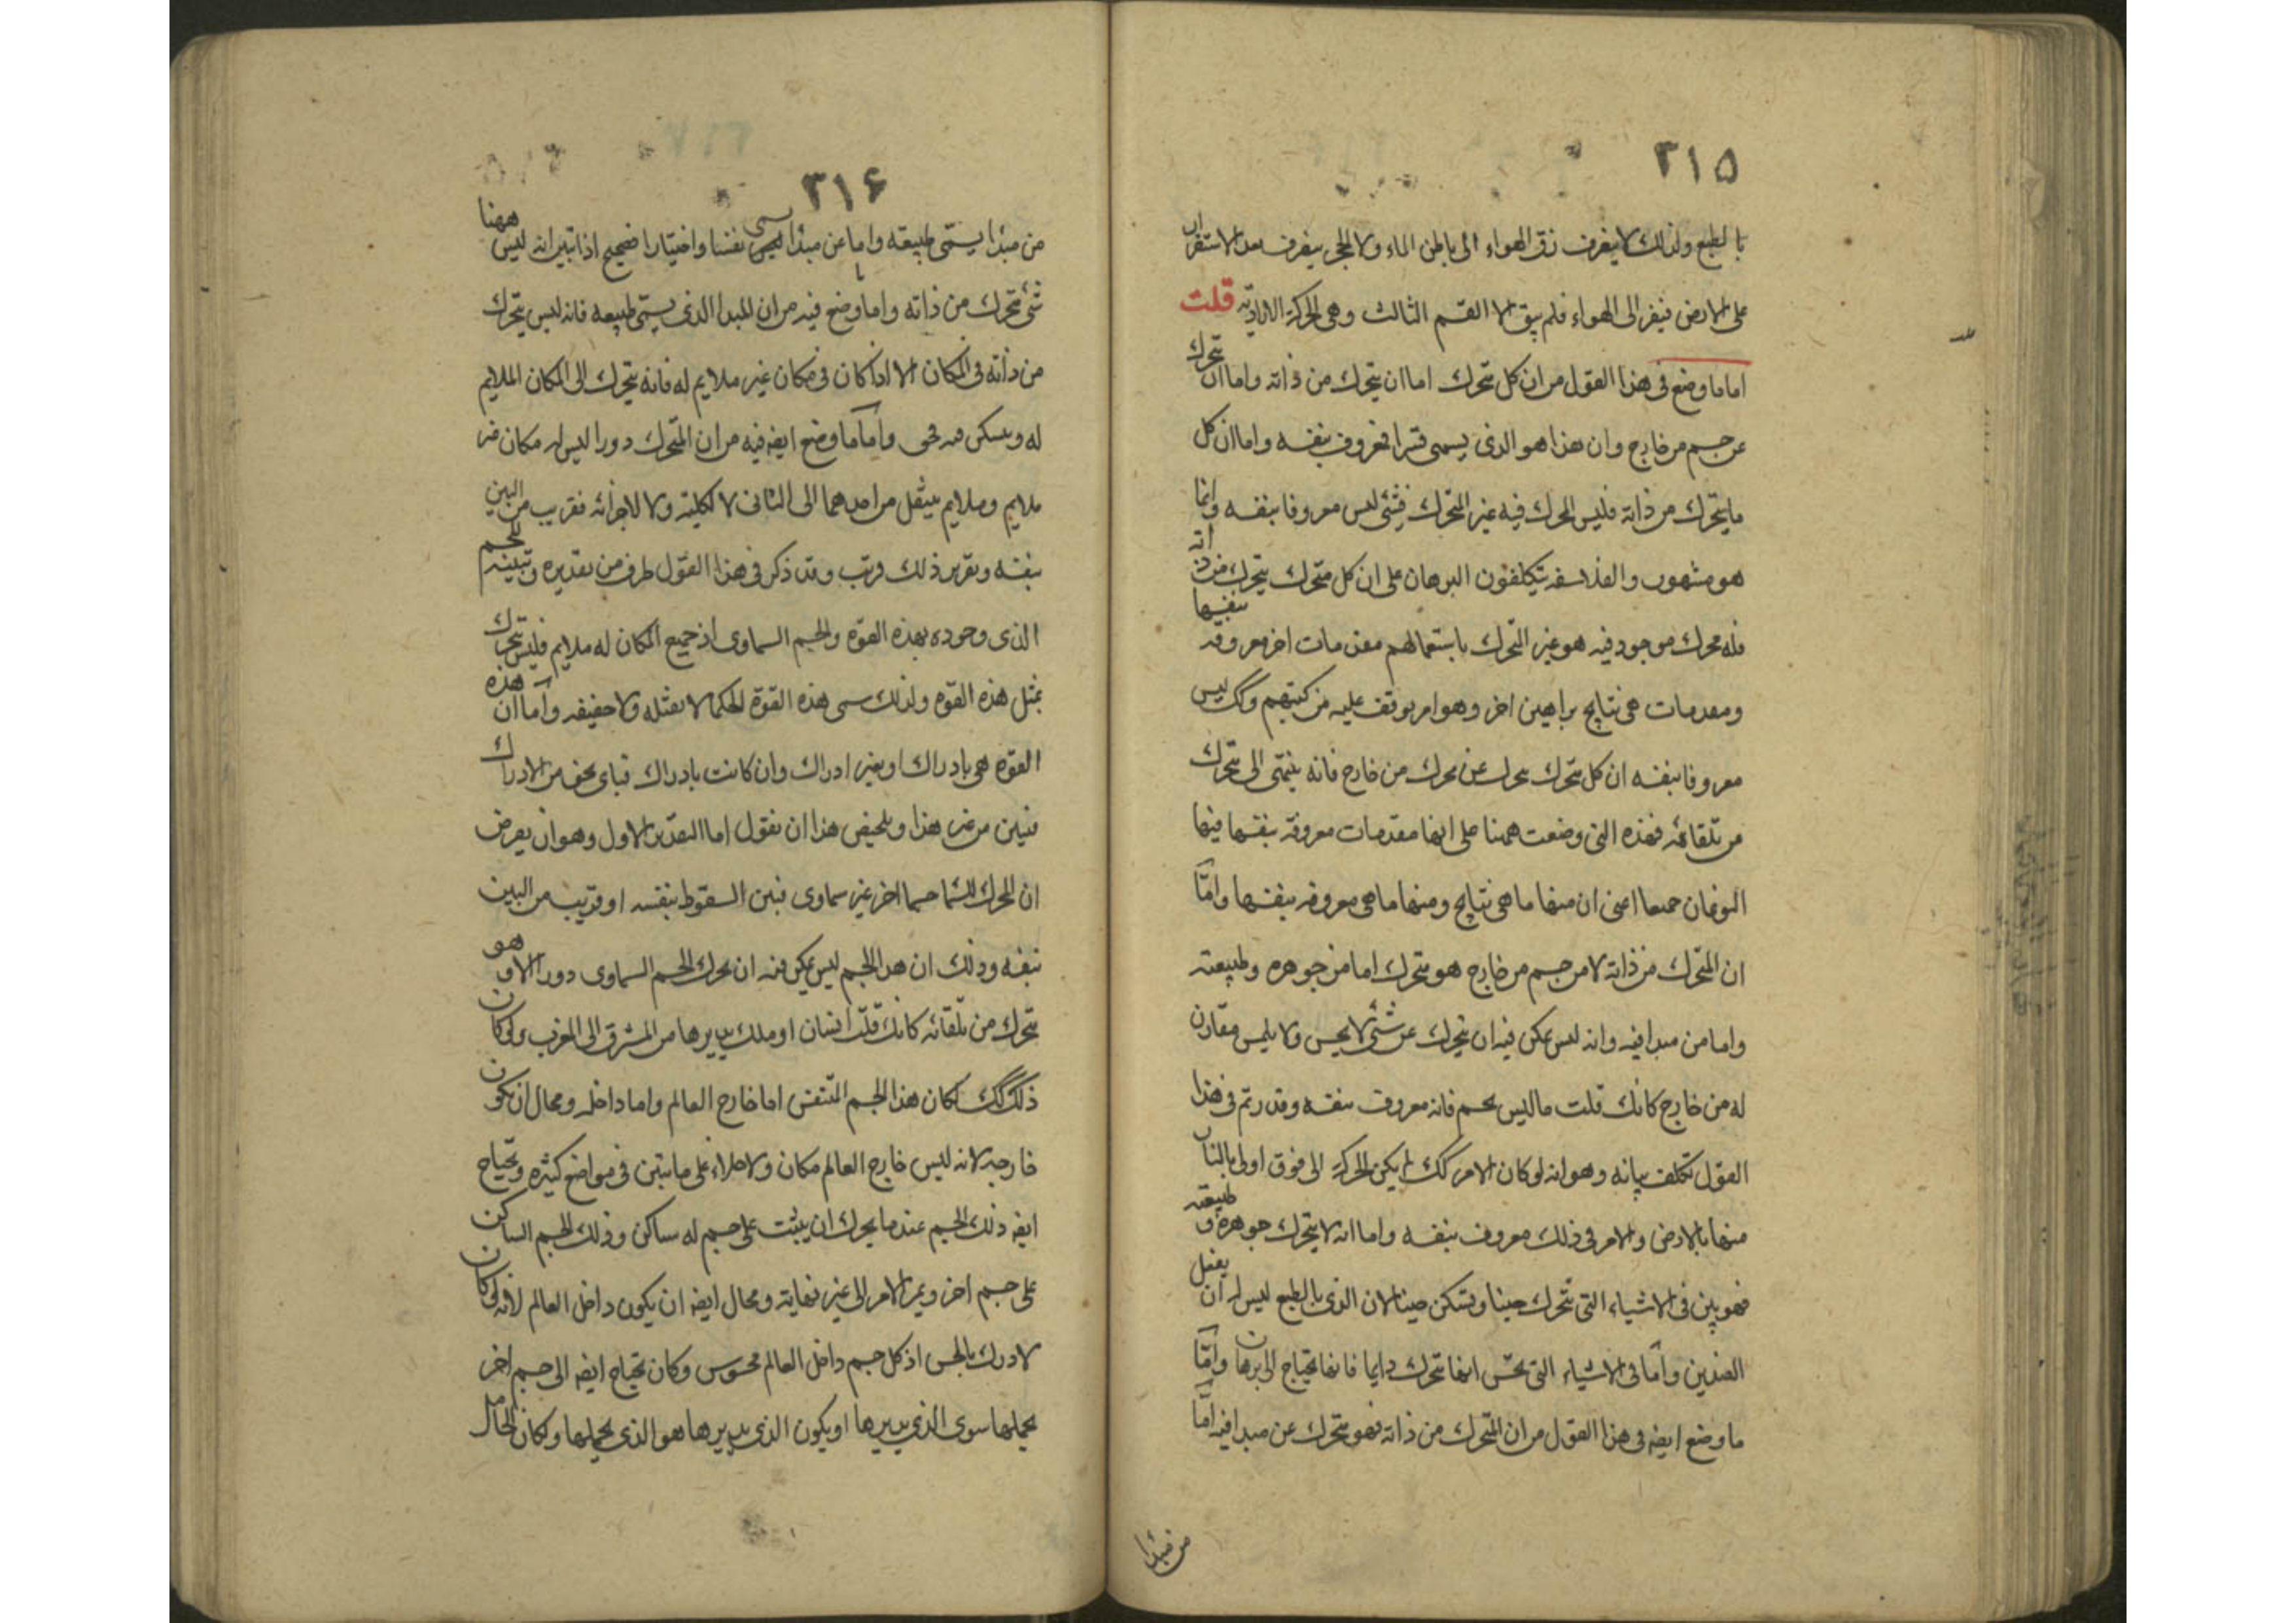 ٣١۵
بالطبع ولذلك لا يفرف زق الهواء الى باطن الماء ولا الحجر يفرف بعد الاستقرار
على الارض فيفر الى الهواء فلم يبق الا القسم الثالث وهى الحركة الارادية قلت
اما ما وضع فى هذا القول من ان كل متحرك اما ان يتحرك من ذاته واما ان يتحرك
عن جسم من خارج وان هذا هو الذى يسمى قسرا فمعروف بنفسه واما ان كل
ما يتحرك من ذاته فليس المحرك فيه غير المتحرك فشئ ليس معروفا بنفسه وانما
هو مشهور والفلاسفه يتكلفون البرهان على ان كل متحرك يتحرك من ذاته
فله محرك موجود فيه هو غير المتحرك باستعمالهم مقدمات اخر معروفه بنفسها
ومقدمات هى نتايج براهين اخر وهو امر يوقف عليه من كتبهم وكك ليس
معروفا بنفسه ان كل متحرك يتحرك عن محرك من خارج فانه ينتهى الى متحرك
من تلقائه فهذه التى وضعت ههنا على انها مقدمات معروفة بنفسها فيها
النوعان جميعا اعنى ان منها ما هى نتايج ومنها ما هى معروفه بنفسها واما
ان المتحرك من ذاته لا من جسم من خارج هو متحرك اما من جوهره وطبيعته
واما من مبدا فيه وانه ليس يمكن فيه ان يتحرك عن شئ لا يحس ولا يلمس مقارن
له من خارج كانك قلت ما ليس بجسم فانه معروف بنفسه وقد رتم فى هذا
القول تكلف بيانه وهو انه لو كان الامر كك لم يكن الحركة الى فوق اولى بالنار
منها بالارض والامر فى ذلك معروف بنفسه واما انه لا يتحرك جوهره و طبيعته
فهو بين فى الاشياء التى تتحرك حينا وتسكن حينا لان الذى بالطبع ليس له ان يفعل
الضدين واما فى الاشياء التى تحس انها تتحرك دايما فانها تحتاج الى برهان واما
ما وضع ايضه فى هذا القول من ان المتحرك من ذاته فهو متحرك عن مبدا فيه اما
من مبدا
٣١۶
من مبدا يسمى طبيعته واما عن مبدا يسمى نفسا واختيارا فصحيح اذا تبين انه ليس ههنا
شئ متحرك من ذاته واما ما وضع فيه من ان المبدا الذى يسمى طبيعه فانه ليس يتحرك
من ذاته فى المكان الا اذا كان فى مكان غير ملايم له فانه يتحرك الى المكان الملايم
له ويسكن فيه فحق واما ما وضع ايضه فيه من ان المتحرك دورا ليس له مكان غير
ملايم وملايم فينتقل من احدهما الى الثانى لا لكليته ولا لاجزائه فقريب من البين
بنفسه وتقرير ذلك قريب وقد ذكر فى هذا القول طرف من تقديره وتبيينه للجسم
الذى وجوده بهذه القوه والجسم السماوى اذ جميع المكان له ملايم فليس يتحرك
بمثل هذه القوه ولذلك سمى هذه القوة الحكما لا ثقيله ولا خفيفه واما ان هذه
القوه هى بادراك او بغير ادراك وان كانت بادراك فباى نحو من الادراك
فيبين من غير هذا وتلخيص هذا ان نقول اما التقدير الاول وهو ان يعرض
ان المحرك للسما جسما اخر غير سماوى فبين السقوط بنفسه او قريب من البين
بنفسه وذلك ان هذا الجسم ليس يمكن فيه ان يحرك الجسم السماوى دورا الا و هو
يتحرك من تلقائه كانك قلت انسان او ملك يديرها من المشرق الى المغرب ولو كان
ذلك كك لكان هذا الجسم المتنفس اما خارج العالم واما داخله ومحال ان يكون
خارجه لانه ليس خارج العالم مكان ولا خلاء على ما تبين فى مواضع كثيره ويحتاج
ايضه ذلك الجسم عندما يحرك ان يثبت على جسم له ساكن وذلك الجسم الساكن
على جسم اخر ويمر الامر الى غير نهايته ومحال ايضه ان يكون داخل العالم لانه لو كان
لادرك بالحس اذ كل جسم داخل العالم محسوس وكان يحتاج ايضه الى جسم اخر
يحملها سوى الذى يديرها او يكون الذى يديرها هو الذى يحملها ولكان الحامل